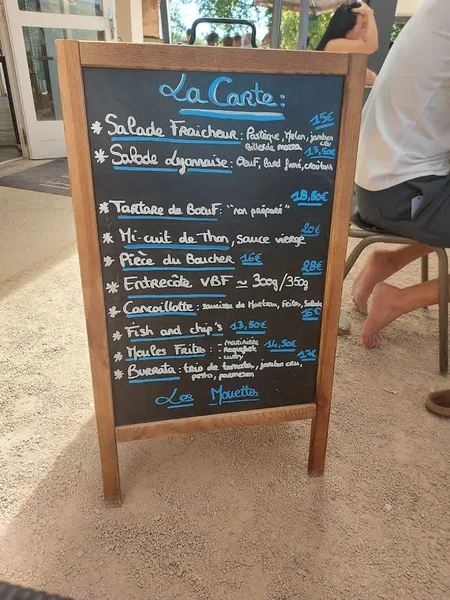 La Carte :
* Salade Fraicheur : Pastèque, Melon, jambon cru 15€
Billes de mozza
* Salade Lyonnaise : Oeuf, lard fumé, croûtons 13,50€
* Tartare de Boeuf : "non préparé" 18,80€
* Mi-cuit de Thon, sauce vierge 20€
* Pièce du Boucher 16€
* Entrecôte VBF ≃ 300g/350g 28€
* Cancoillotte : saucisse de Morteau, Frites, Salade
16€
* Fish and chip's 13,50€
* Moules Frites : - marinière 14,50€
- roquefort
- curry
* Burrata : trio de tomate, jambon cru, 17€
pesto, parmesan
Les Mouettes